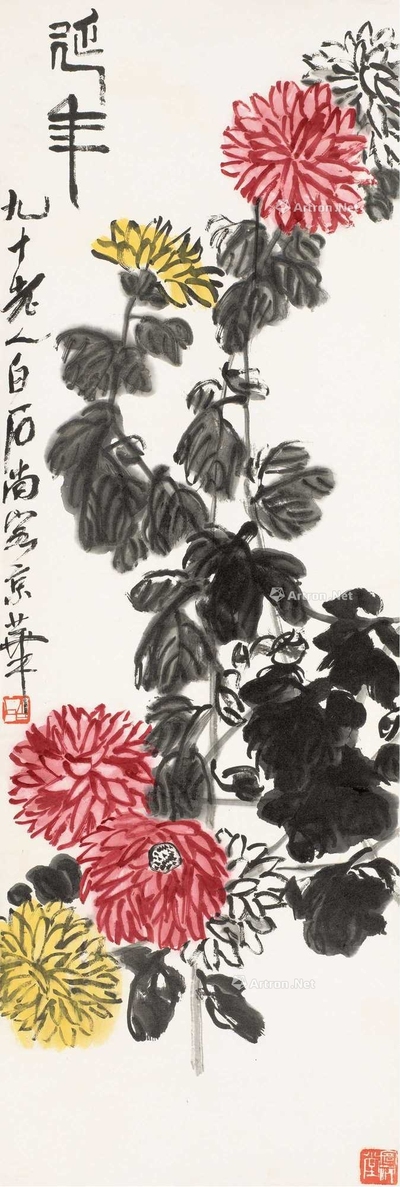 延年
九十老人白石尚客京華
ArtronArt.Net
Artron.Net
Artron.Net